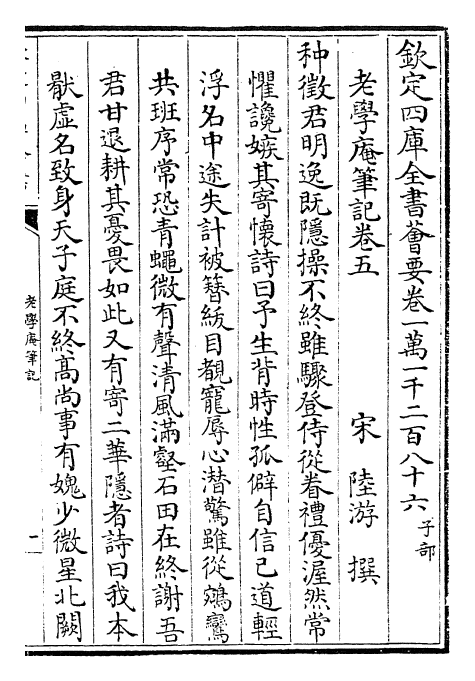 欽定四庫全書薈要卷一萬一千二百八十六 子部
老學庵筆記卷五
宋 陸游 撰
种徵君明逸既隱操不終雖驟登侍從眷禮優渥然常
懼讒嫉其寄懷詩曰予生背時性孤僻自信已道輕
浮名中途失計被簪紱目覩寵辱心潛驚雖從鵷鸞
共班序常恐青蠅微有聲清風滿壑石田在終謝吾
君甘退耕其憂畏如此又有寄二華隱者詩曰我本
猒虛名致身天子庭不終高尚事有媿少微星北闕
老學庵筆記
一